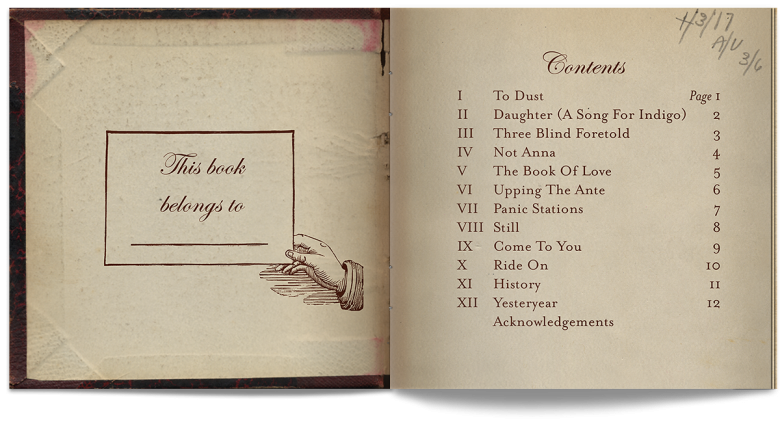 This book
belongs to
H3/17
A/U
3/6
Contents
I To Dust Page 1
II Daughter (A Song For Indigo) 2
III Three Blind Foretold 3
IV Not Anna 4
V The Book Of Love 5
VI Upping The Ante 6
VII Panic Stations 7
VIII Still 8
IX Come To You 9
X Ride On 10
XI History 11
XII Yesteryear 12
Acknowledgements